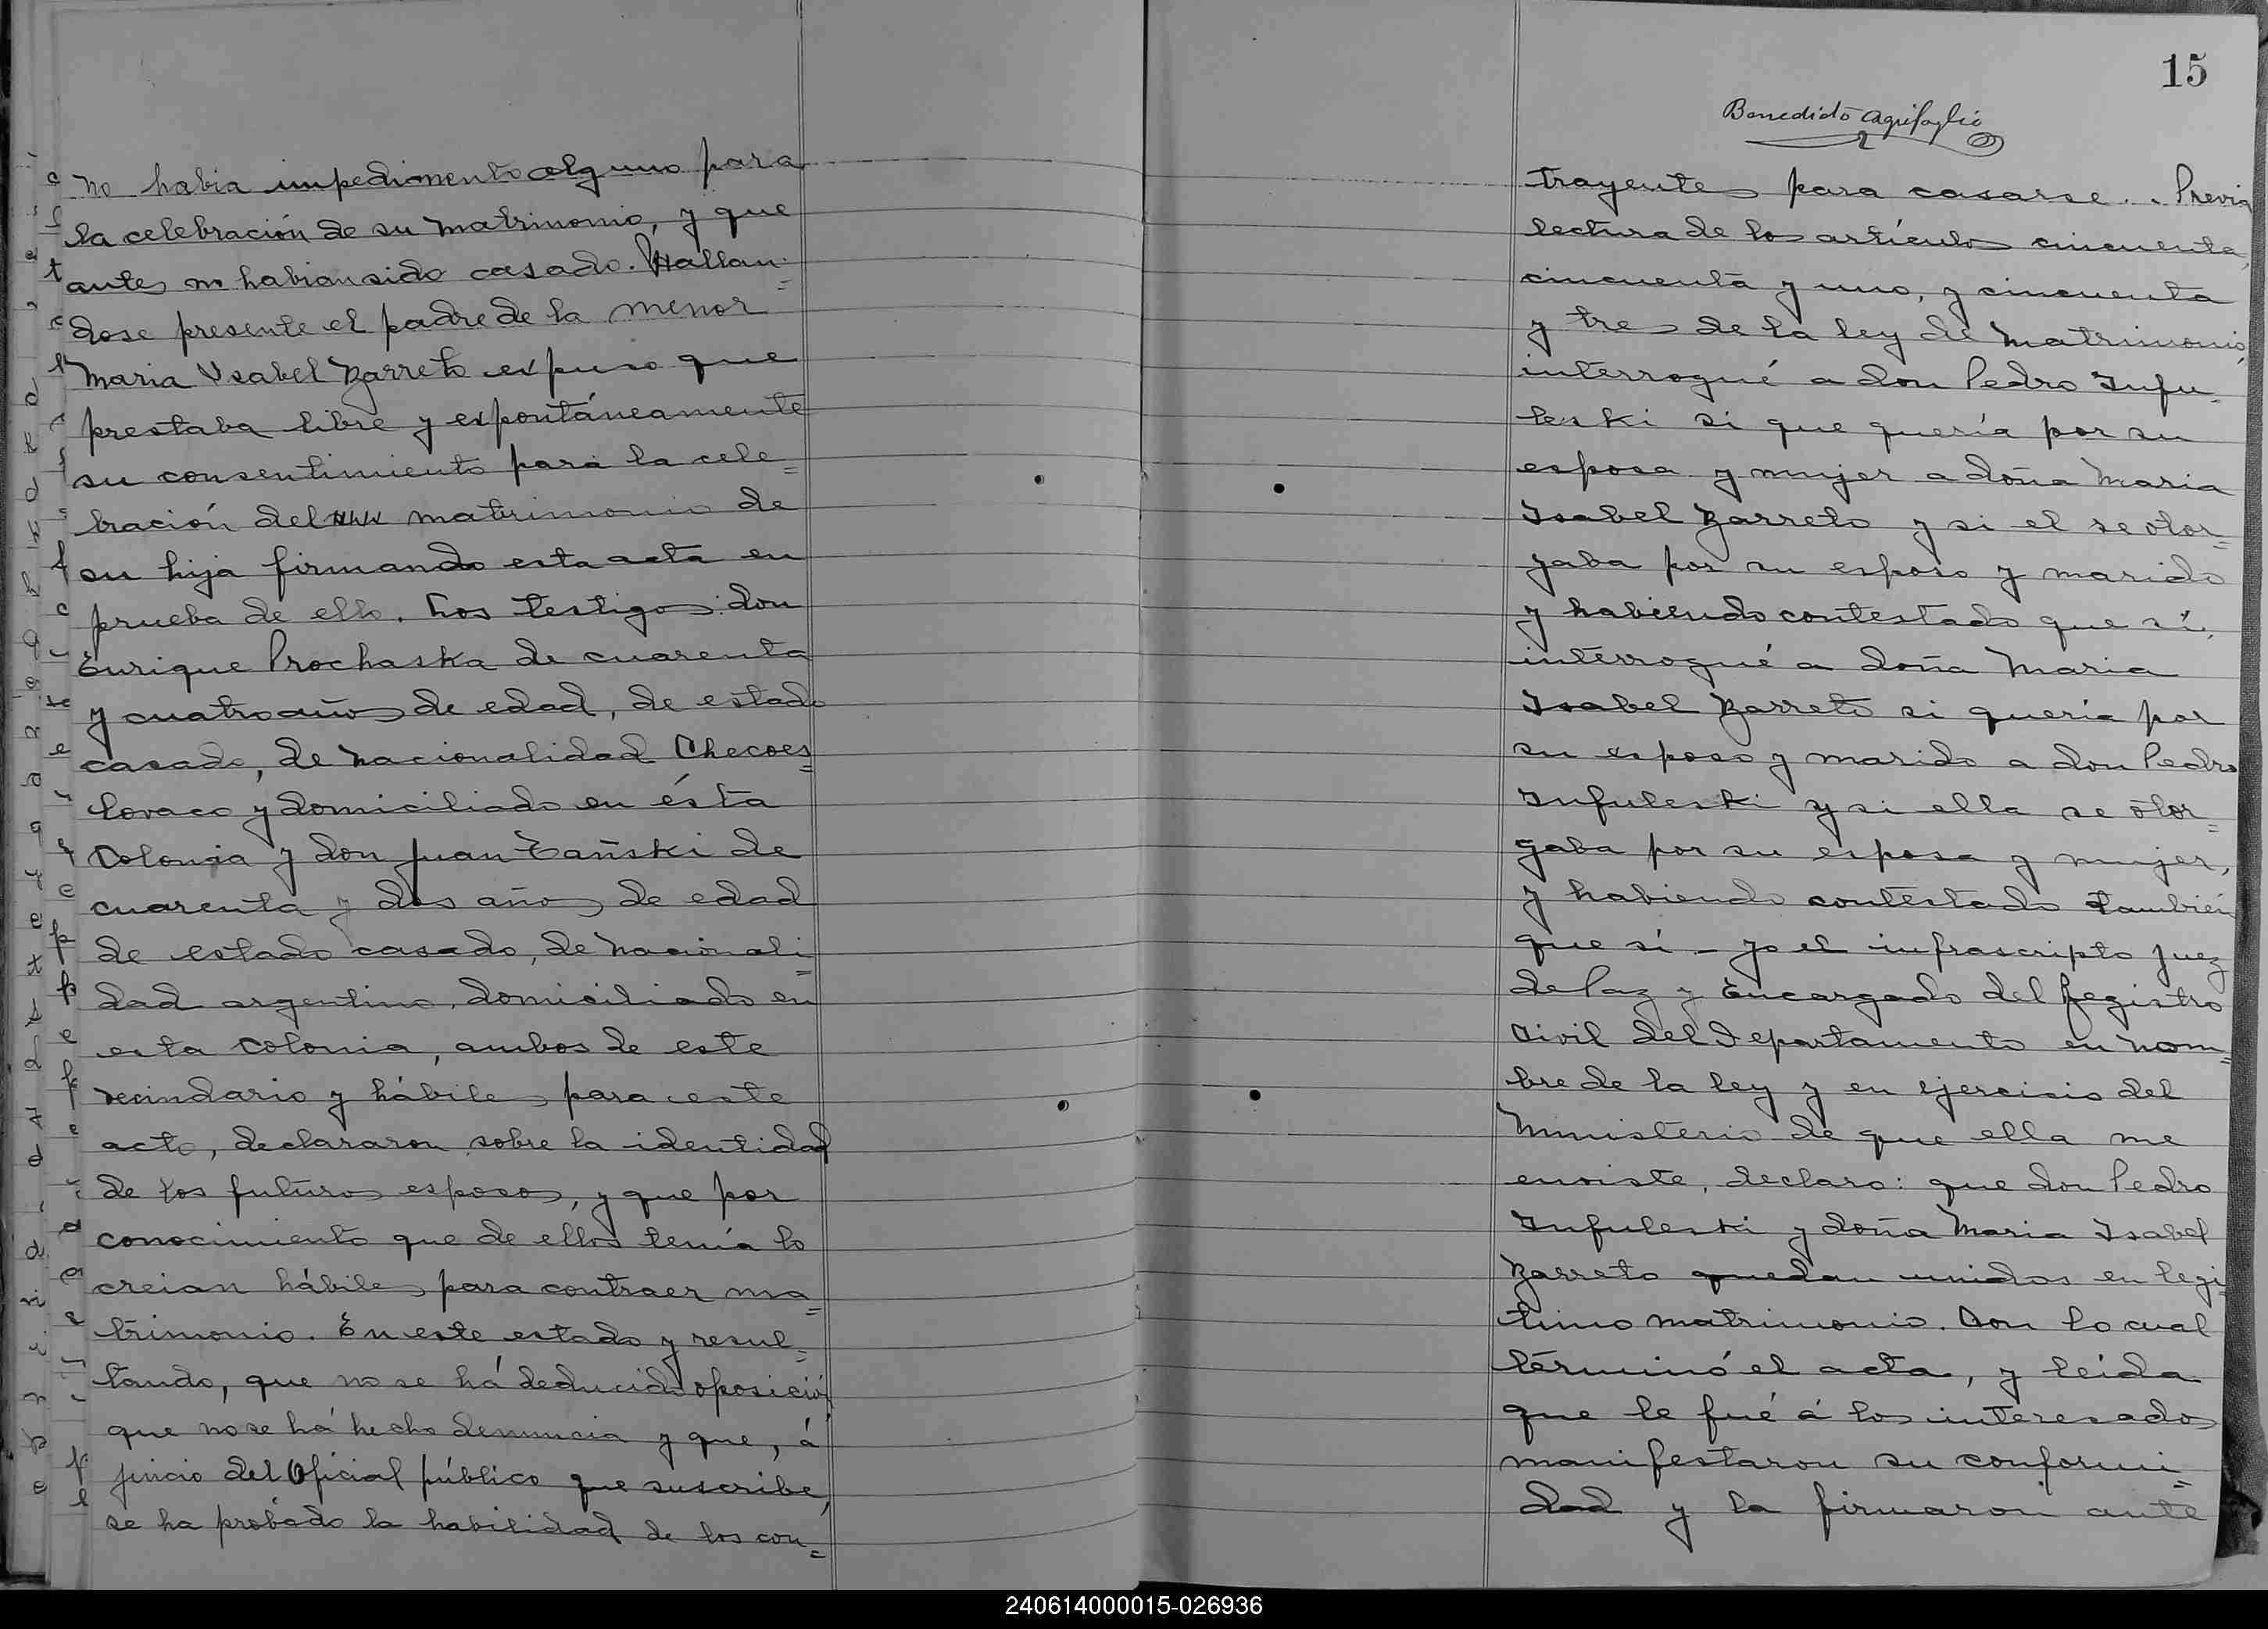 no habia impedimento alguno para
la celebración de su matrimonio, y que
antes no habian sido casado. Hallan=
dose presente el padre de la menor
Maria Ysabel Barreto expuso que
prestaba libre y expontáneamente
su consentimiento para la cele=
bración del matrimonio de
su hija firmando esta acta en
prueba de ello. Los testigos: don
Enrique Prochaska de cuarenta
y cuatro años de edad, de estado
casado, de nacionalidad Checoes=
lovaco y domiciliado en ésta
Colonia y don Juan Zañski de
cuarenta y dos años de edad
de estado casado, de nacionali=
dad argentino, domiciliado en
esta Colonia, ambos de este
vecindario y hábiles para este
acto, declararon sobre la identidad
de los futuros esposos, y que por
conocimiento que de ellos tenía lo
creian hábiles para contraer ma=
trimonio. En este estado y resul=
tando, que no se há deducido oposición
que no se há hecho denuncia y que, á
juicio del Oficial público que suscribe,
se ha probado la habilidad de los con=
15
Benedicto
trayentes para casarse. Previa
lectura de los artículos cincuenta,
cincuenta y uno, y cincuenta
y tres de la ley de Matrimonio,
interrogué a don Pedro Infu=
leski si que quería por su
esposa y mujer a doña Maria
Isabel Barreto y si el se otor=
gaba por su esposo y marido
y habiendo contestado que sí,
interrogué a doña Maria
Isabel Barreto si quería por
su esposo y marido a don Pedro
Infuleski y si ella se otor=
gaba por su esposa y mujer,
y habiendo contestado también
que sí - yo el infrascripto Juez
de Paz y Encargado del Registro
Civil del Departamento en nom=
bre de la ley y en ejercicio del
Ministerio de que ella me
enviste, declaro: que don Pedro
Infuleski y doña Maria Isabel
Barreto quedan unidos en legi=
timo matrimonio. Con lo cual
términó el acta, y leída
que le fué á los interesados
manifestaron su conformi=
dad y la firmaron ante
240614000015-026936